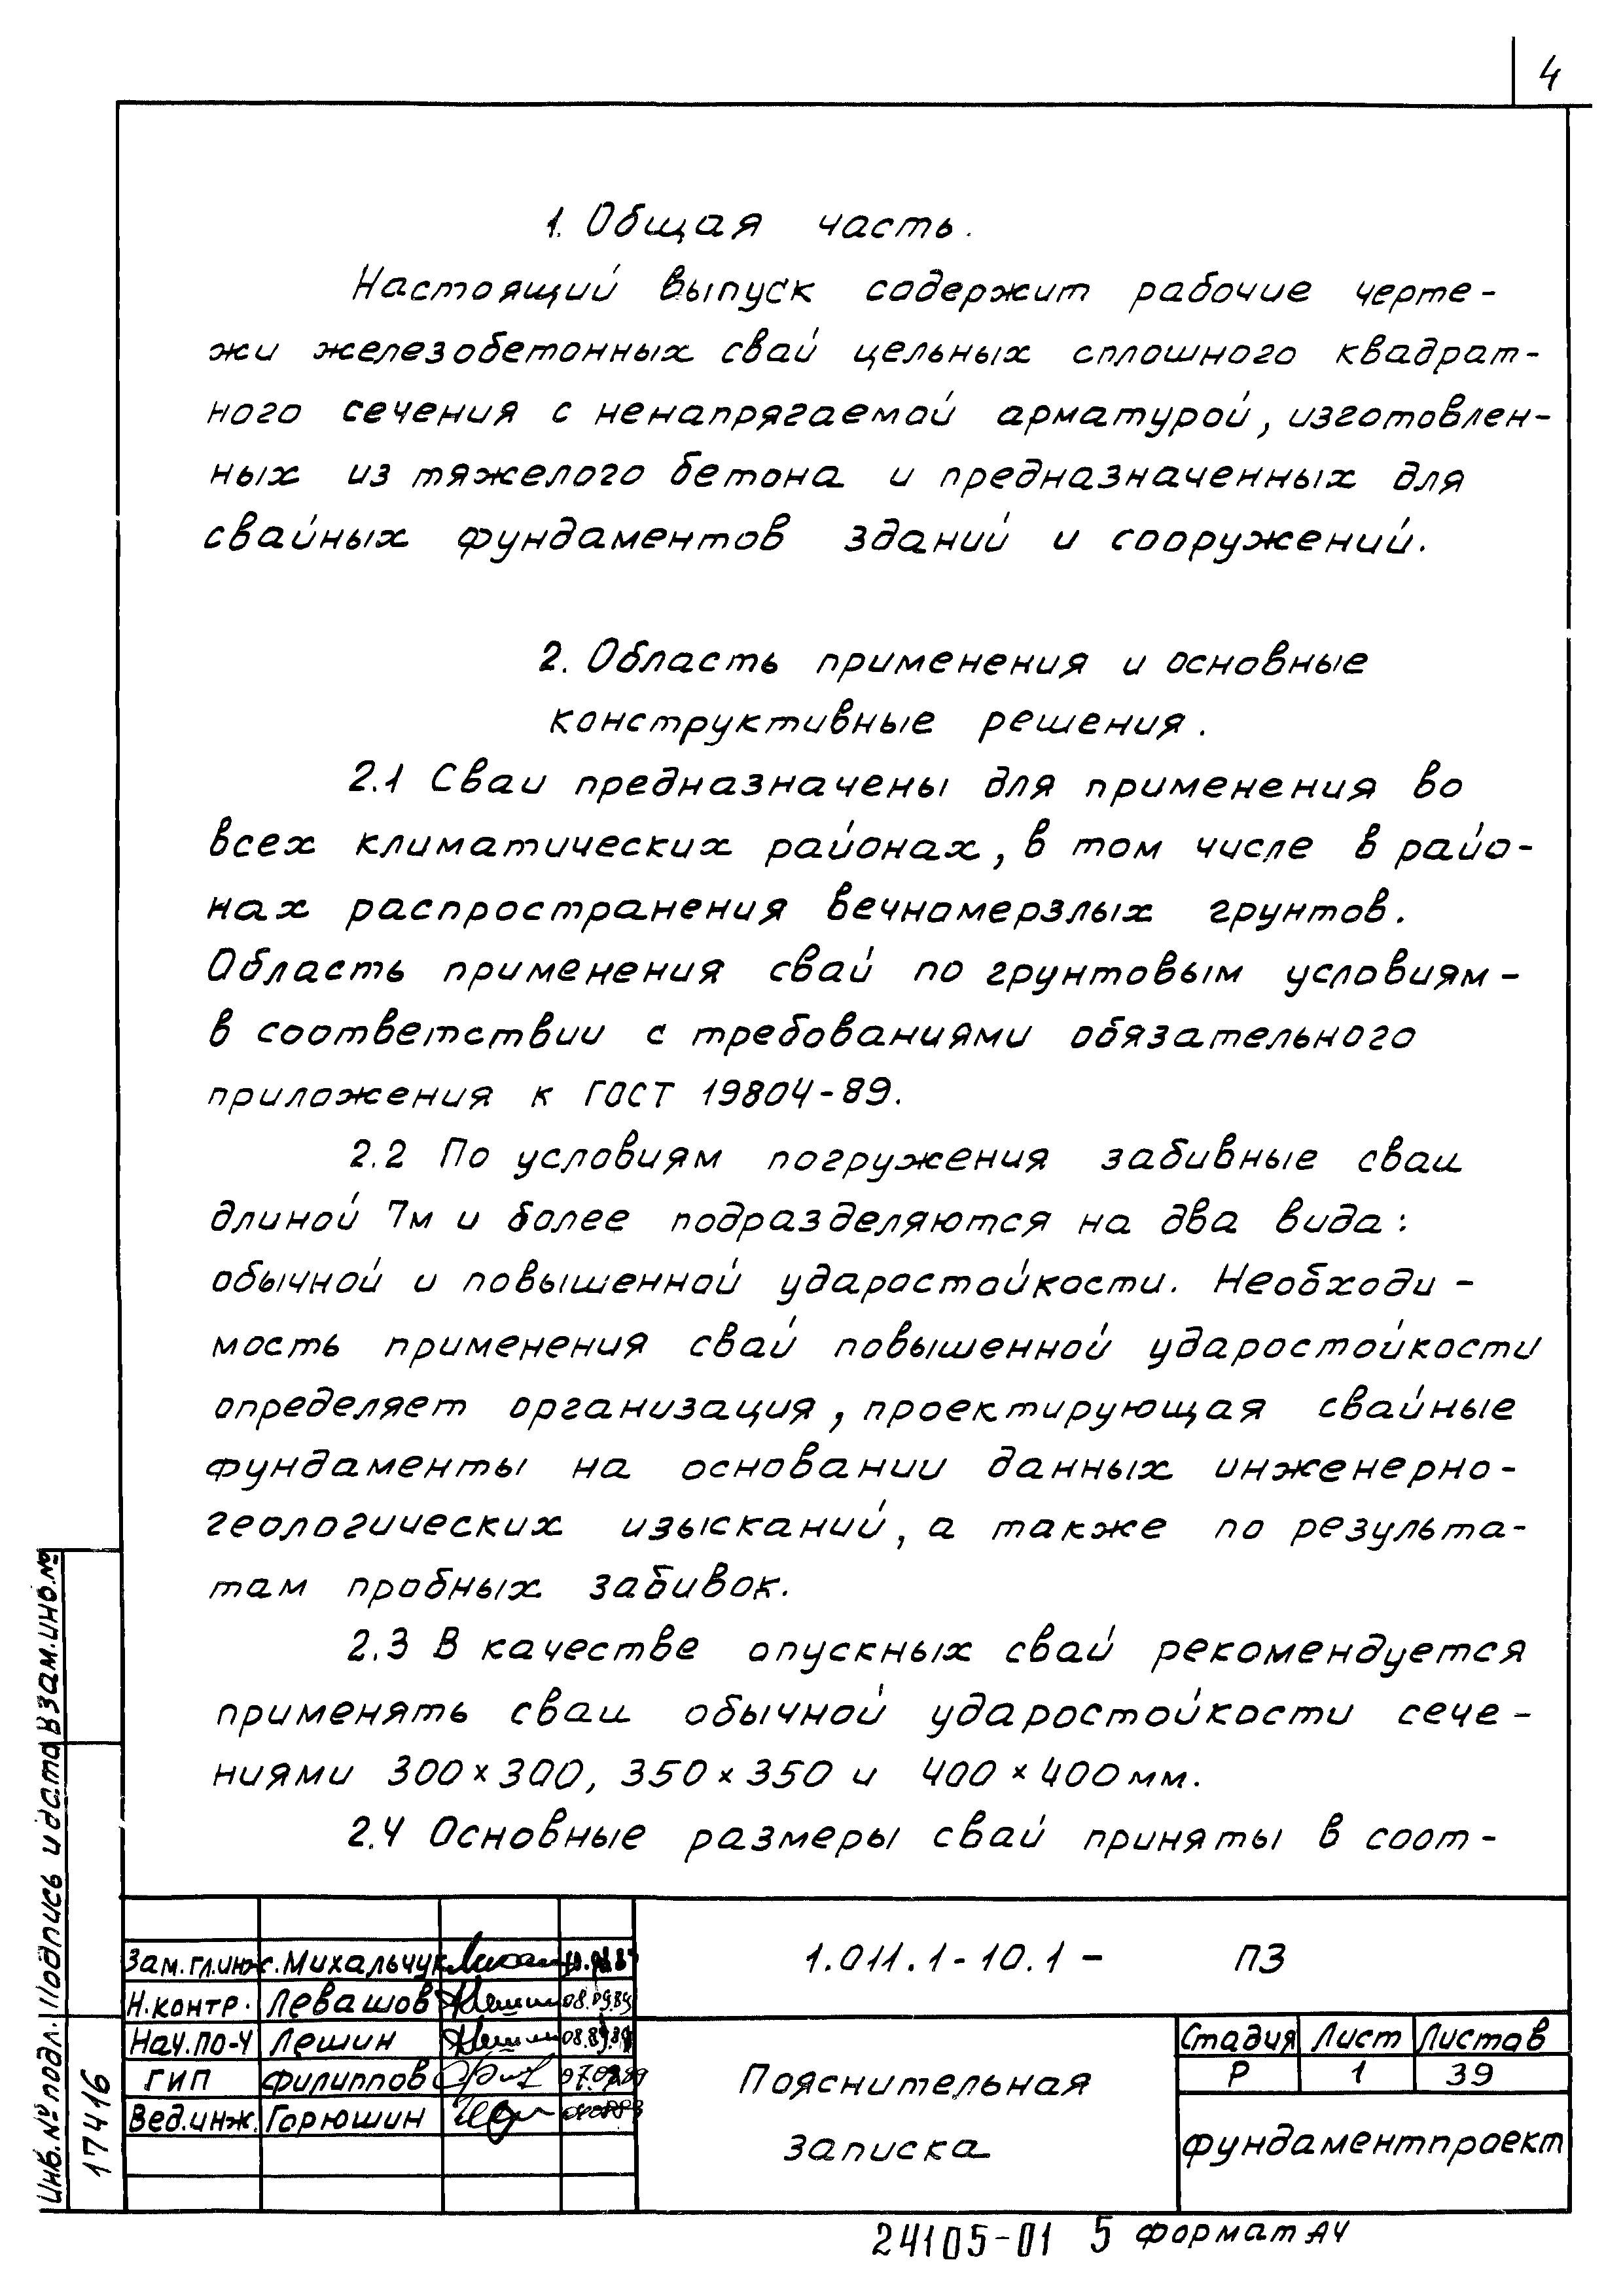 4
1. Общая часть.
Настоящий выпуск содержит рабочие черте-
жи железобетонных свай цельных сплошного квадрат-
ного сечения с ненапрягаемой арматурой, изготовлен-
ных из тяжелого бетона и предназначенных для
свайных фундаментов зданий и сооружений.
2. Область применения и основные
конструктивные решения.
2.1 Сваи предназначены для применения во
всех климатических районах, в том числе в райо-
нах распространения вечномерзлых грунтов.
Область применения свай по грунтовым условиям -
в соответствии с требованиями обязательного
приложения к ГОСТ 19804-89.
2.2 По условиям погружения забивные сваи
длиной 7м и более подразделяются на два вида:
обычной и повышенной ударостойкости. Необходи-
мость применения свай повышенной ударостойкости
определяет организация, проектирующая свайные
фундаменты на основании данных инженерно-
геологических изысканий, а также по результа-
там пробных забивок.
2.3 В качестве опускных свай рекомендуется
применять сваи обычной ударостойкости сече-
ниями 300×300, 350×350 и 400×400мм.
2.4 Основные размеры свай приняты в соот-
Взам.инв.№
Подпись и дата
Инв.№ подл.
17416
Зам.гл.инж. Михальчук
Н.контр. Левашов 08.09.89
Нач.ПО-4 Лешин
ГИП Филиппов
Вед.инж. Горюшин
1.011.1-10.1- ПЗ
Пояснительная
записка
Стадия Лист Листов
Р 1 39
Фундаментпроект
24105-01 5 Формат А4